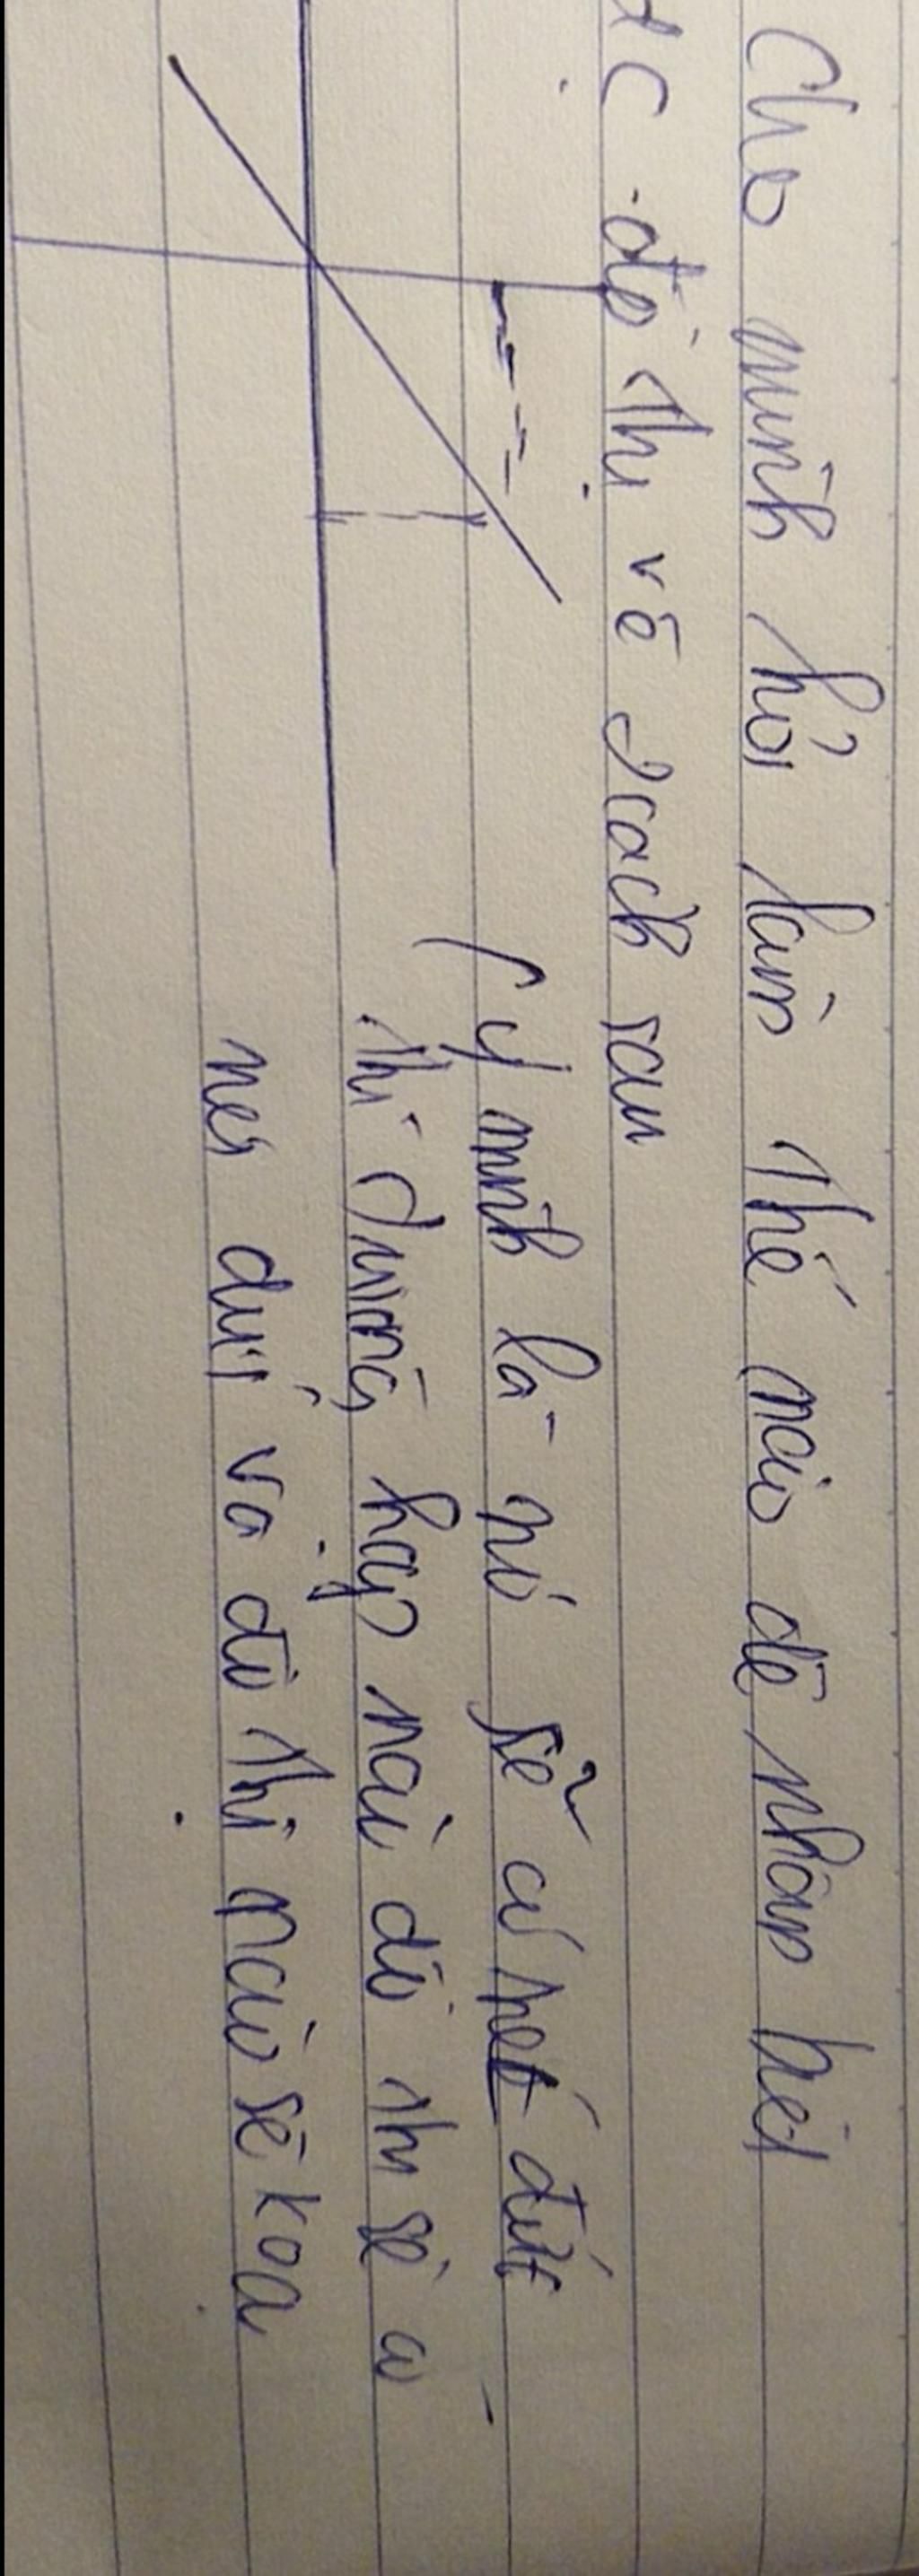 Cho mình hỏi làm thế nào để nhận biết
đc đồ thị vẽ cách sau
(ý mình là nó sẽ có nét đứt
thì trường hợp nào đồ thị sẽ có
nét đứt và đồ thị nào sẽ koa